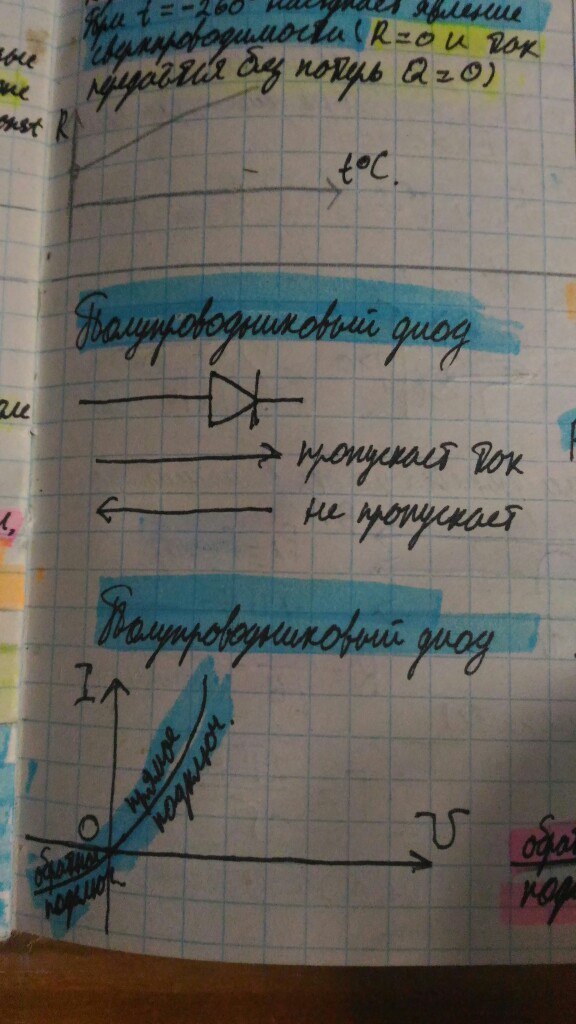 При t = -260° наступает явление
сверхпроводимости (R=0 и ток
передаётся без потерь Q=0)
R
t°C.
Полупроводниковый диод
пропускает ток
не пропускает
Полупроводниковый диод
I
прямое
подключ.
0
U
обратное
подключ.